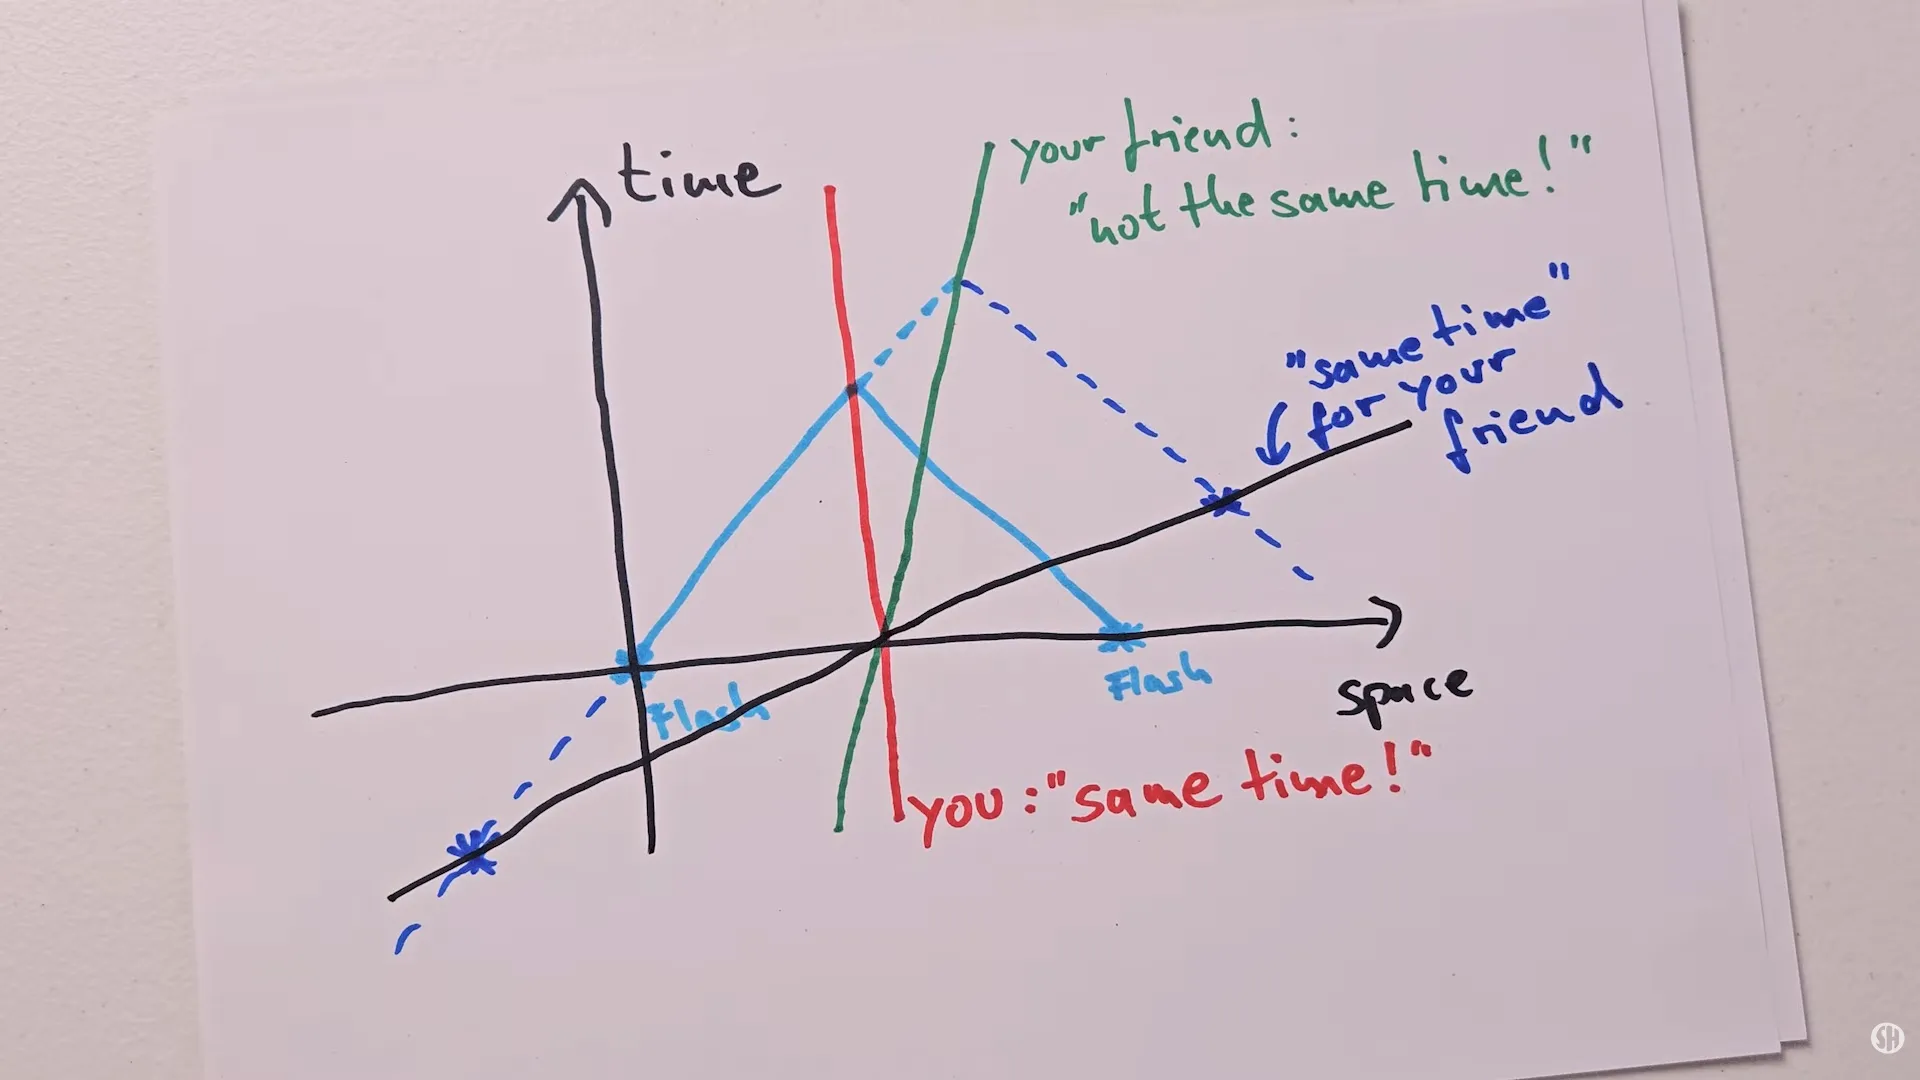 time
your friend:
"not the same time!"
"same time"
for your
friend
Flash
Flash
space
you: "same time!"
SH